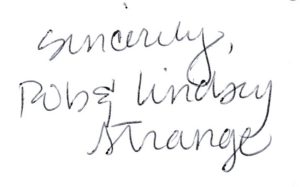 Sincerely,
Rob & Lindsey
Strange